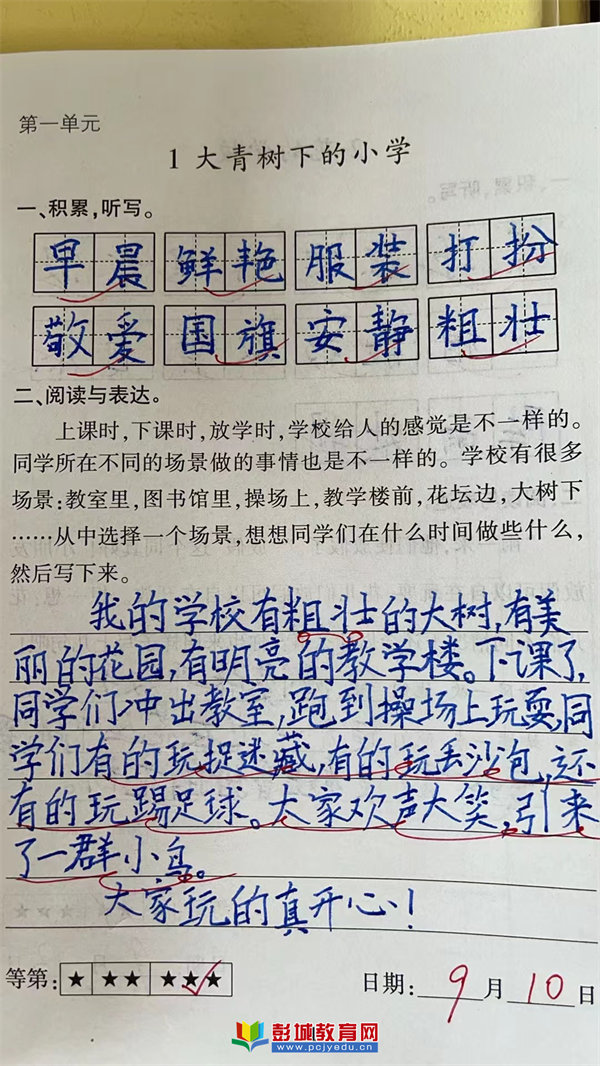 第一单元
1 大青树下的小学
一、积累,听写。
早晨 鲜艳 服装 打扮
敬爱 国旗 安静 粗壮
二、阅读与表达。
上课时,下课时,放学时,学校给人的感觉是不一样的。
同学所在不同的场景做的事情也是不一样的。学校有很多
场景:教室里,图书馆里,操场上,教学楼前,花坛边,大树下
……从中选择一个场景,想想同学们在什么时间做些什么,
然后写下来。
我的学校有粗壮的大树,有美
丽的花园,有明亮的教学楼。下课了,
同学们冲出教室,跑到操场上玩耍,同
学们有的玩捉迷藏,有的玩丢沙包,还
有的玩踢足球。大家欢声大笑,引来
了一群小鸟。
大家玩的真开心!
等第: ★ ★★ ★★★ 日期: 9 月 10 日
彭城教育网
www.pcjyedu.cn